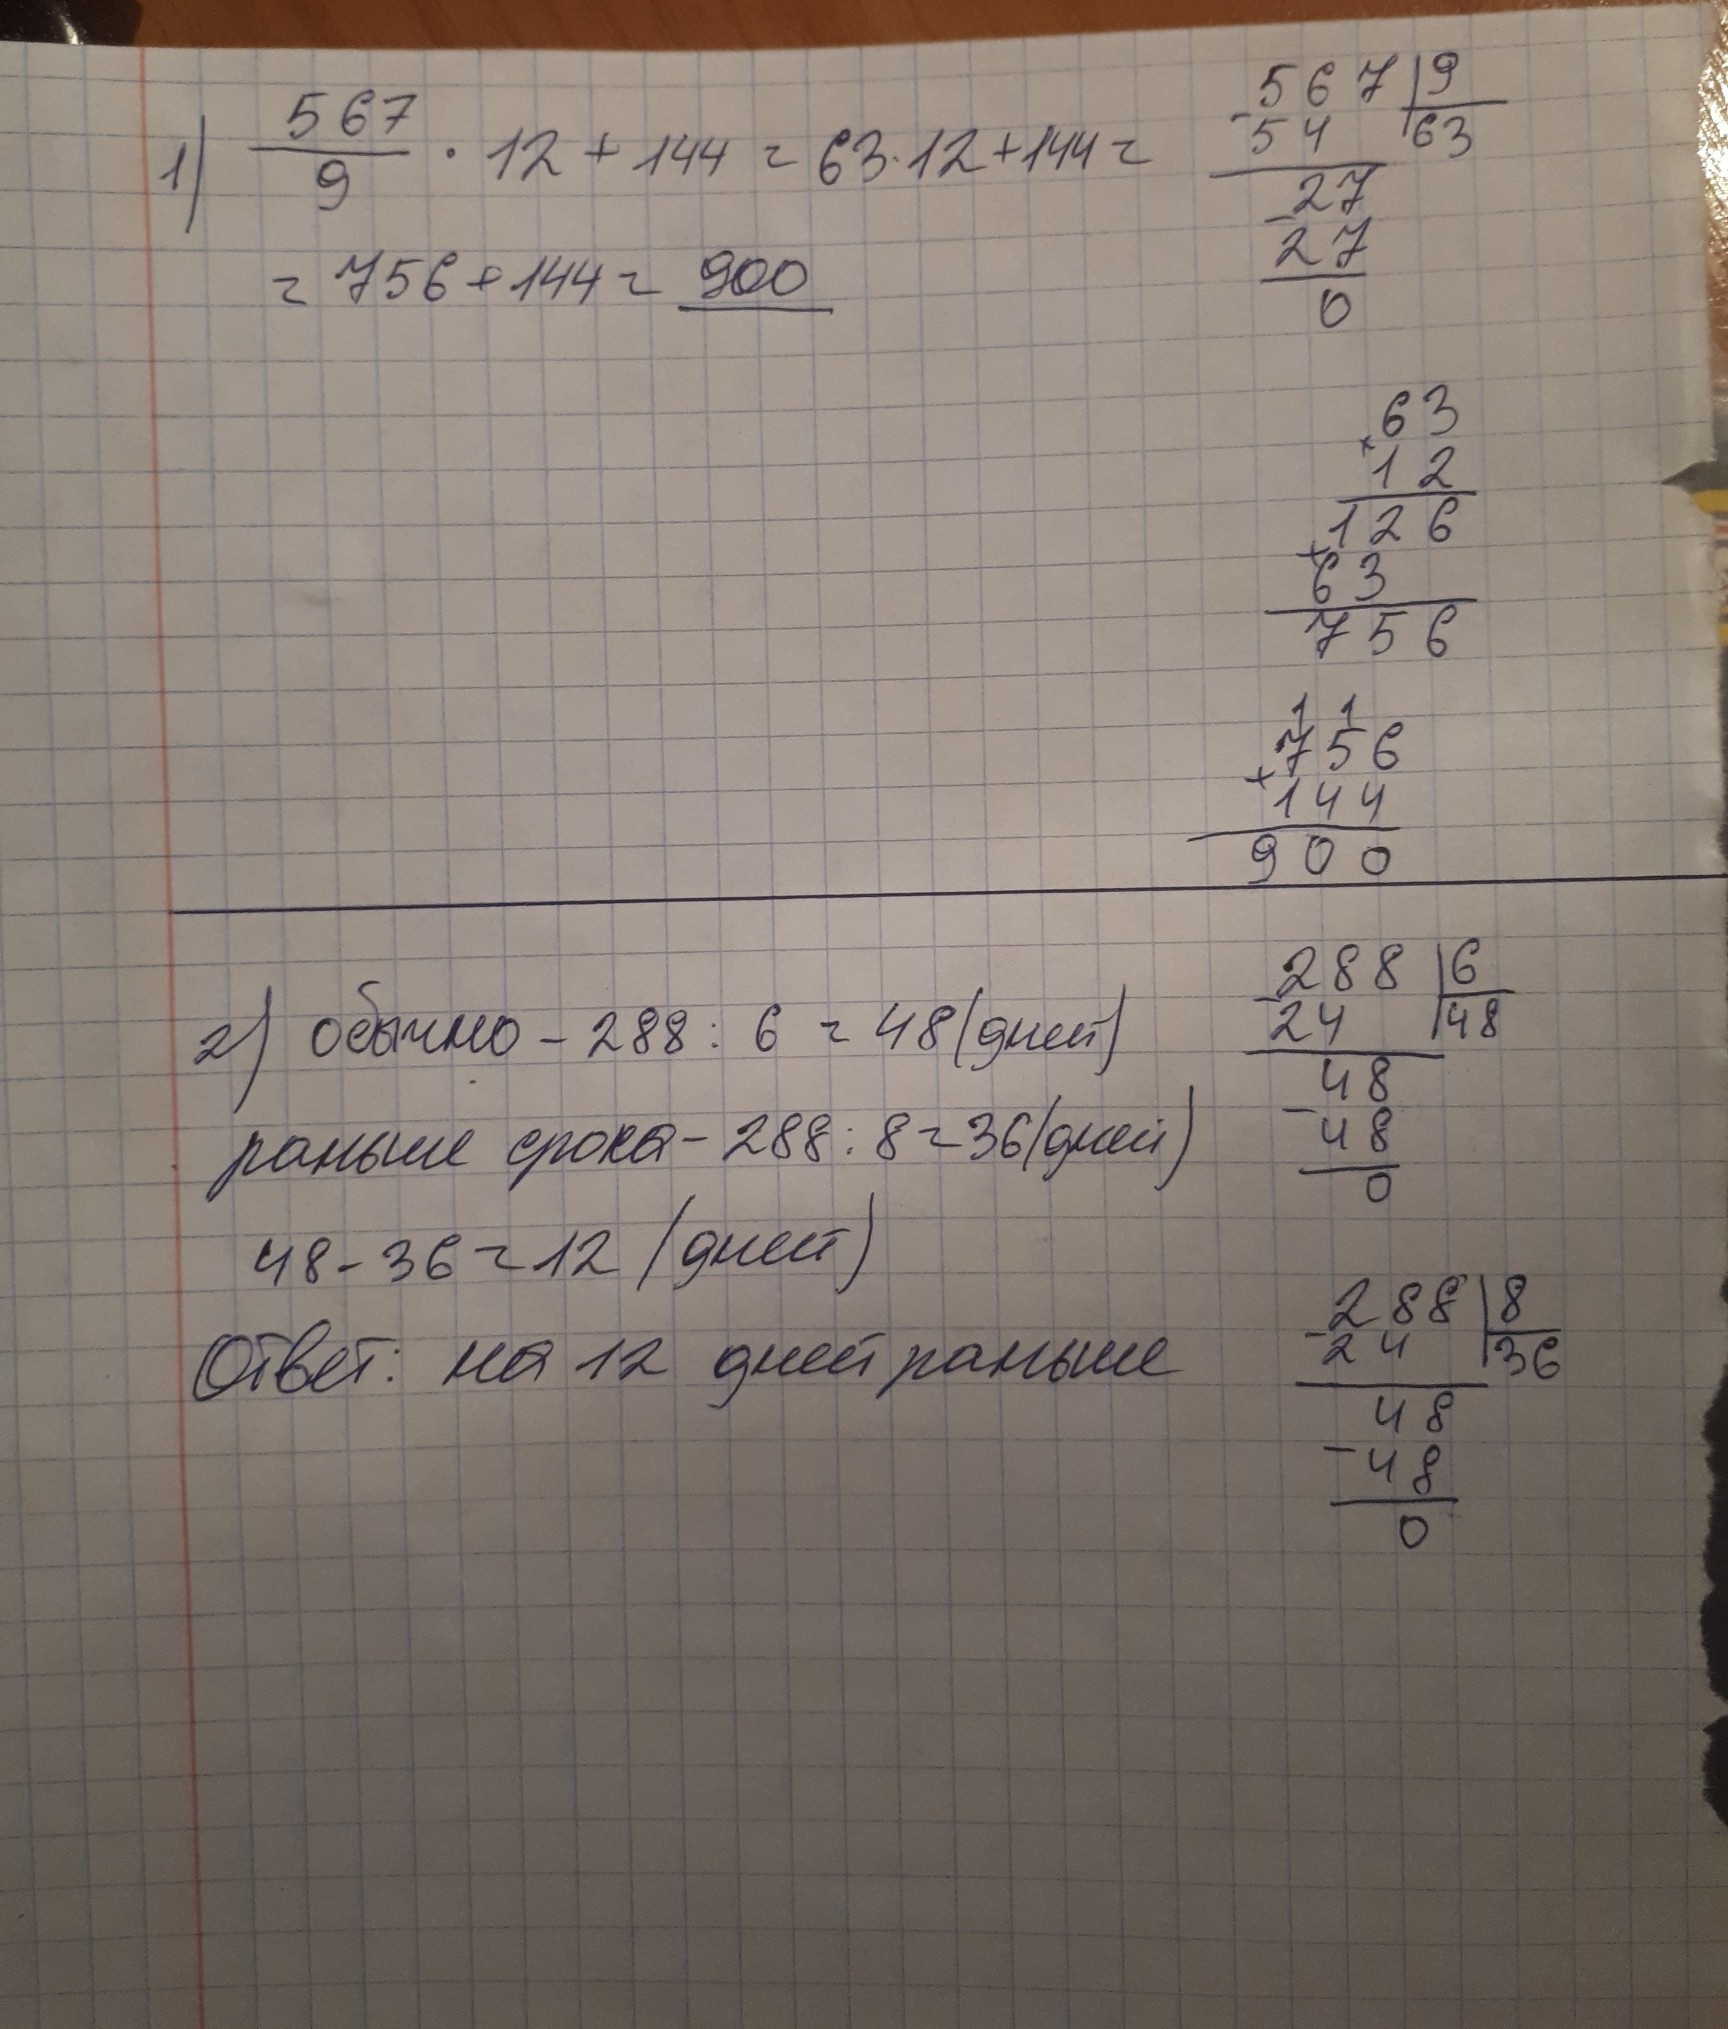 1) 567/9 · 12 + 144 = 63 · 12 + 144 =
= 756 + 144 = 900
- 567 | 9
54 | 63
- 27
27
0
63
× 12
126
+ 63
756
1 1
756
+ 144
900
2) обычно - 288 : 6 = 48 (дней)
раньше срока - 288 : 8 = 36 (дней)
48 - 36 = 12 (дней)
Ответ: на 12 дней раньше
- 288 | 6
24 | 48
48
- 48
0
- 288 | 8
24 | 36
48
- 48
0